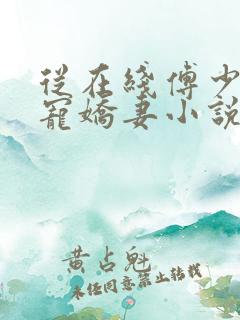 從在綫傅少
寵嬌妻小説
黄占魁
未经同意禁止转载